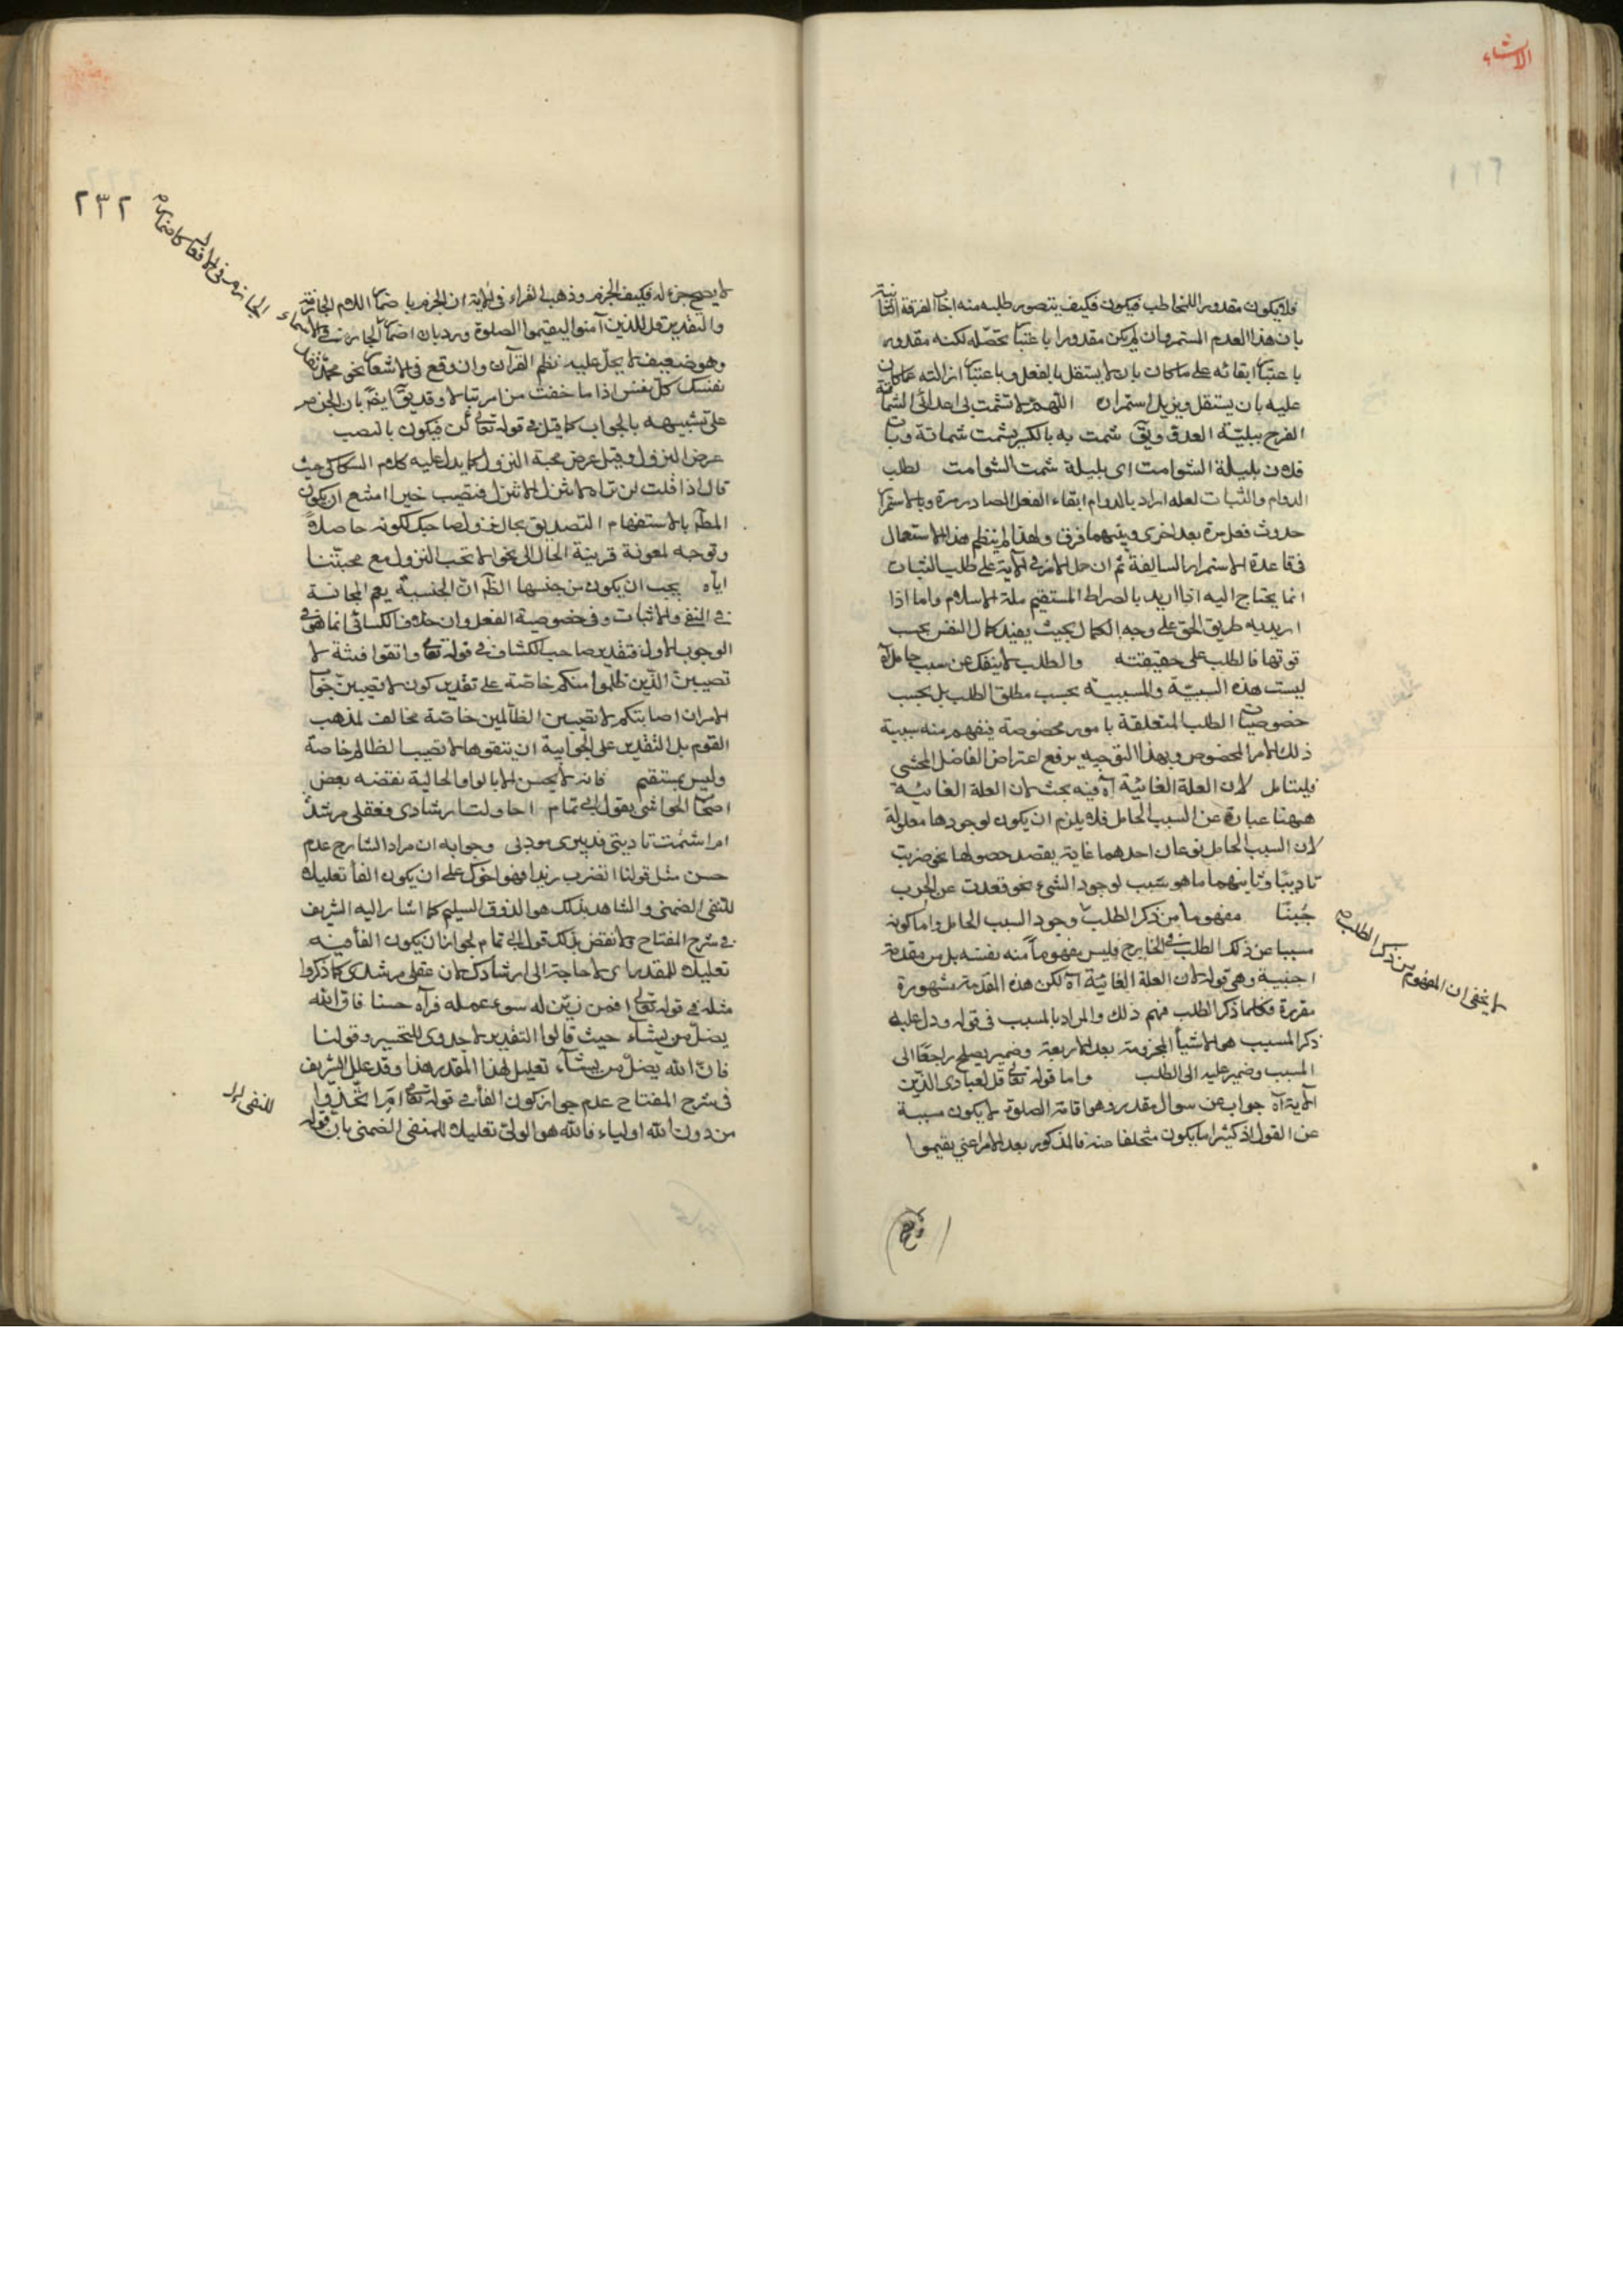 الانشاء
فلا يكون مقدورا للمخاطب فيكون فكيف يتصور طلبه منه اجاب الفرقة الثانية
بان هذا العدم المستمر وان لم يكن مقدورا باعتبار تحصّله لكنه مقدور
باعتبار ابقائه على ما كان بان لا يستقل بالفعل وباعتبار ازالته عما كان
عليه بان يستقل ويزيل استمراره اللهم لا تشمت بى اعدائى الشماتة
الفرح ببليّة العدو ويق شمت به بالكسر يشمت شماتة وبات
فلان بليلة الشوامت اى بليلة شمت الشوامت لطلب
الدوام والثبات لعله اراد بالدوام ابقاء الفعل الصادر مرة وبالاستمرار
حدوث فعل مرة بعد اخرى وبينهما فرق ولهذا لم ينظم هذا الاستعمال
فى قاعدة الاستمرار السالفة ثم ان حمل الامر فى الآية على طلب الثبات
انما يحتاج اليه اذا اريد بالصراط المستقيم ملة الاسلام واما اذا
اريد به طريق الحق على وجه الكمال بحيث يفيد كمال النفس بحسب
قوتها فالطلب على حقيقته والطلب لا ينفك عن سبب حامل اه
ليست هذه السببيّة والمسببية بحسب مطلق الطلب بل بحسب
خصوصيات الطلب المتعلقة بامور مخصوصة فيفهم منه سببية
ذلك الامر المخصوص وبهذا التوجيه يرفع اعتراض الفاضل المحشى
فليتامل لان العلة الغائية اه فيه بحث لان العلة الغائية
ههنا عبارة عن السبب الحامل فلا يلزم ان يكون لوجودها معلولة
لان السبب الحامل نوعان احدهما غاية يقصد حصولها نحو ضربت
تاديبًا وثانيهما ما هو سبب لوجود الشئ نحو قعدت عن الحرب
جُبنًا مفهوما من ذكر الطلب وجود السبب الحامل واما كونه
لا يخفى ان المفهوم من ذكر الطلب
مسببا عن ذلك الطلب فى الخارج فليس مفهوماً منه نفسه بل من مقدمة
اجنبية وهى قوله لان العلة الغائية اه لكن هذه المقدمة مشهورة
مقررة فكلما ذكر الطلب فهم ذلك والمراد بالمسبب فى قوله ودل عليه
ذكر المسبب هو الاشياء المجزومة بعد الاربعة وضمير يصلح راجعًا الى
المسبب وضمير عليه الى الطلب واما قوله تعالى قل لعبادى الذين
الآية اه جواب عن سوال مقدر وهو اقامة الصلوة لا يكون مسببة
عن القول اذ كثيرا ما يكون متخلفا عنه فالمذكور بعد الامر اعنى يقيموا
٢٣٢
لا يصح جزء له فكيف الجزم وذهب الفراء فى الآية ان الجزم باضمار اللام الجازمة
والتقدير قل للذين آمنوا ليقيموا الصلوة ورد بان اضمار الجازم فى الافعال كاضمار الجار فى الاسماء
وهو ضعيف لا يحل عليه نظم القرآن وان وقع فى الاشعار نحو محمد تفد
نفسك كل نفس اذا ما خفت من امر تبالا وقد يق ايضا بان الجزم
على تشبيهه بالجواب كما قيل فى قوله تعالى كن فيكون بالنصب
عرض النزول وقيل عرض محبة النزول كما يدل عليه كلام السكاكى حيث
قال اذا قلت لمن تراه لا ينزل الا تنزل فتصيب خيرا امتنع ان يكون
المطلوب بالاستفهام التصديق بحال نزول صاحبك لكونه حاصلاً
وتوجه لمعونة قرينة الحال الى نحو الا تحب النزول مع محبتنا
اياه يجب ان يكون من جنسها الظ ان الجنسية يعم المجانسة
فى النفى والاثبات وفى خصوصية الفعل وان خلاف الكسائى انما هو فى
الوجوب الاول فتقدير صاحب الكشاف فى قوله تعالى واتقوا فتنة لا
تصيبن الذين ظلموا منكم خاصة على تقدير كون لا تصيبن جواب
الامر ان اصابتكم لا تصيبن الظالمين خاصة مخالف لمذهب
القوم بل التقدير على الجوابية ان يتقوها لا تصيب الظالم خاصة
وليس بمستقيم فانه لا يحسن الا بالواو الحالية نقضه بعض
اصحاب الحواشى بقول ابى تمام احاولت ارشادى فعقلى مرشدى
ام استمت تاديبى فدهرى مودبى وجوابه ان مراد الشارح عدم
حسن مثل قولنا اتضرب زيدا فهو اخوك على ان يكون الفاء تعليلا
للنفى الضمنى والشاهد بذلك هو الذوق السليم كما اشار اليه الشريف
فى شرح المفتاح ولا نقض بذلك قول ابى تمام لجواز ان يكون الفاء فيه
تعليلا للمقدر اى لا حاجة الى ارشادك لان عقلى مرشدى كما ذكروا
مثله فى قوله تعالى افمن زين له سوء عمله فرآه حسنا فان الله
يضل من يشاء حيث قالوا التقدير لا جدوى للتحسير وقولنا
فان الله يضل من يشاء تعليل لهذا المقدر هذا وقد علل الشريف
فى شرح المفتاح عدم جواز كون الفاء فى قوله تعالى ام اتخذوا
من دون الله اولياء فالله هو الولى تعليلا للمنفى الضمنى بان قوله